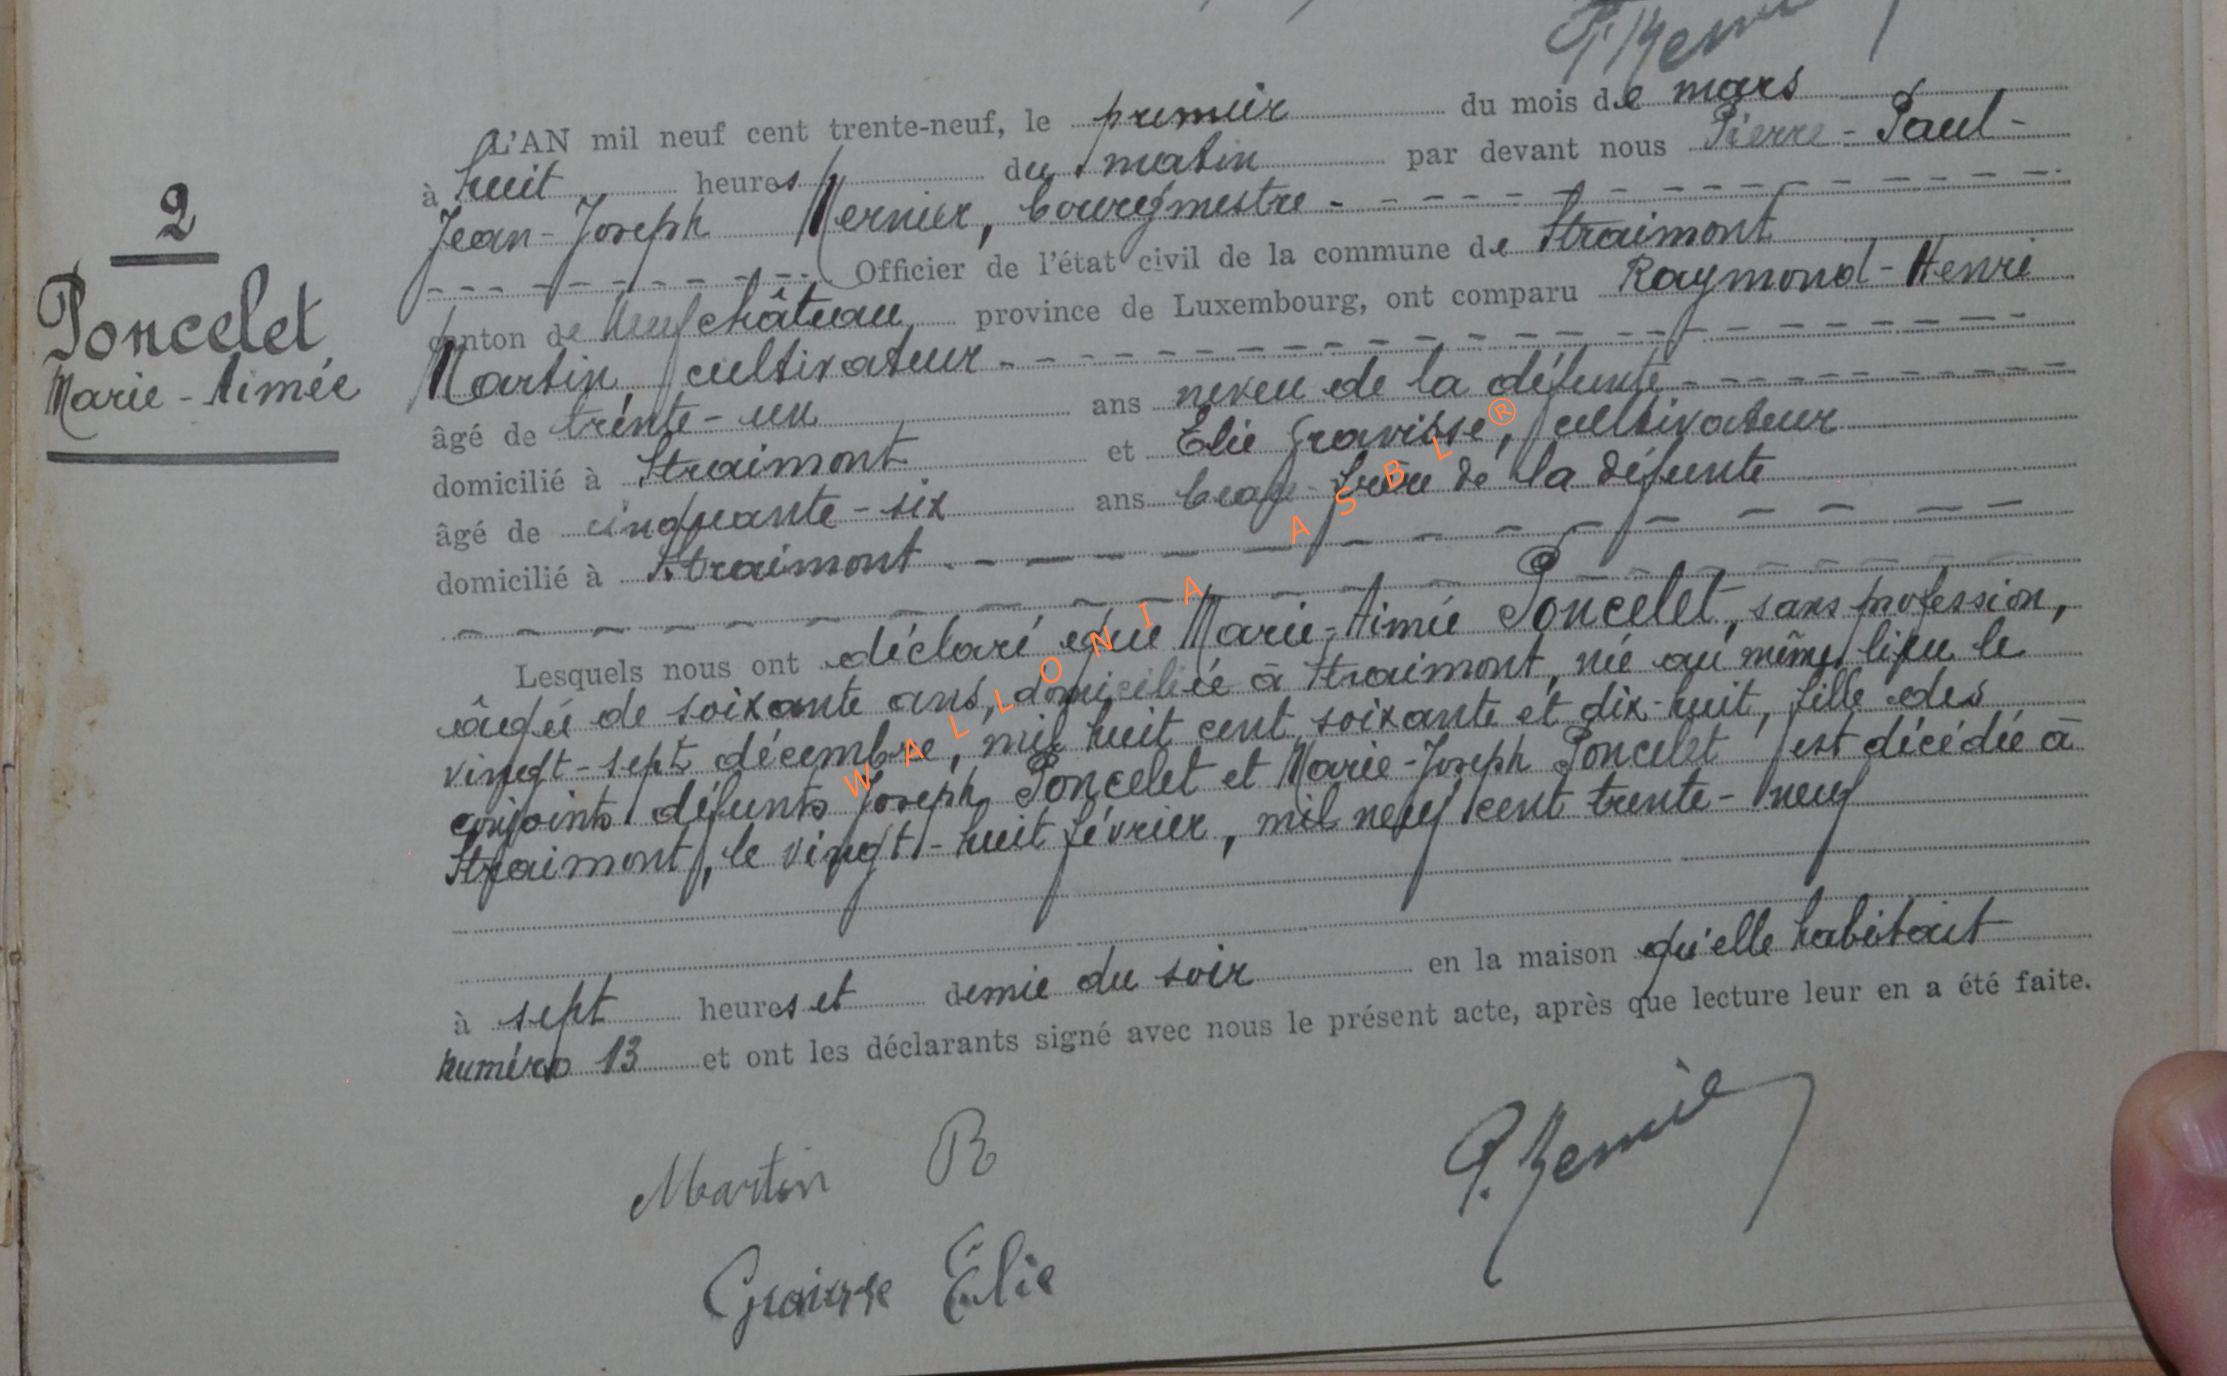 2
Poncelet
Marie-Aimée
L'AN mil neuf cent trente-neuf, le premier du mois de mars
à huit heures du matin par devant nous Pierre-Paul-
Jean-Joseph Mernier, bourgmestre
Officier de l'état civil de la commune de Straimont
canton de Neufchâteau, province de Luxembourg, ont comparu Raymond-Henri
Martin, cultivateur
âgé de trente-un ans neveu de la défunte
domicilié à Straimont et Elie Gravisse, cultivateur
âgé de cinquante-six ans beau-frère de la défunte
domicilié à Straimont
Lesquels nous ont déclaré que Marie-Aimée Poncelet, sans profession,
âgée de soixante ans, domiciliée à Straimont, née au même lieu le
vingt-sept décembre, mil huit cent soixante et dix-huit, fille des
conjoints défunts Joseph Poncelet et Marie-Joseph Poncelet est décédée à
Straimont, le vingt-huit février, mil neuf cent trente-neuf
à sept heures et demie du soir en la maison qu'elle habitait
numéro 13 et ont les déclarants signé avec nous le présent acte, après que lecture leur en a été faite.
Martin R
P. Mernier
Elie
WALLONIA ASBL®